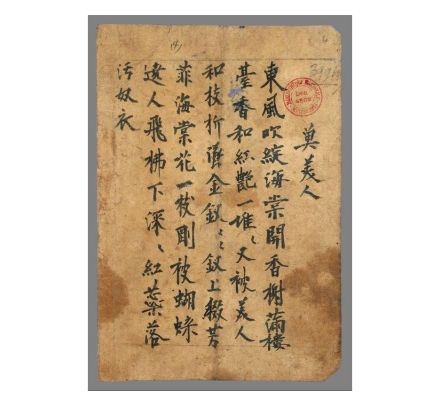 奠美人
東風吹綻海棠開香榭滿樓
臺香和紅艷一堆〻又被美人
和枝折墜金釵〻釵上綴芳
菲海棠花一枝剛被蝴蝶
遶人飛拂下深〻紅蕊落
污奴衣